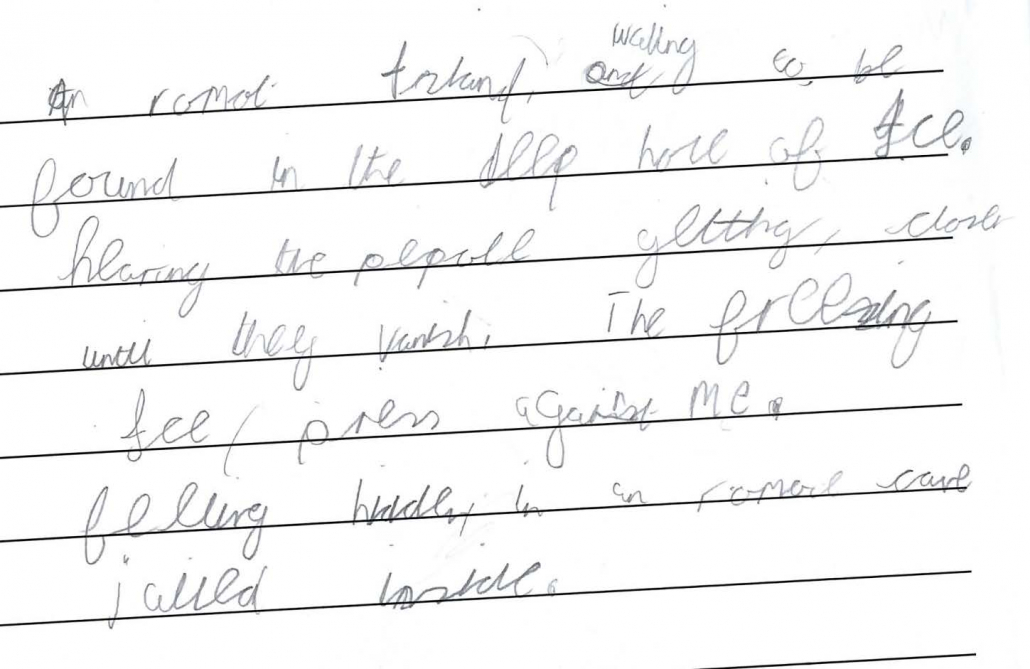 An romot Iseland, waiting to be
found in the deep hole of Ice.
hearing the pepoll getting, closer
until they vanish. The freezing
Ice, press against me.
felling hidden in an romote cave
jailed inside.